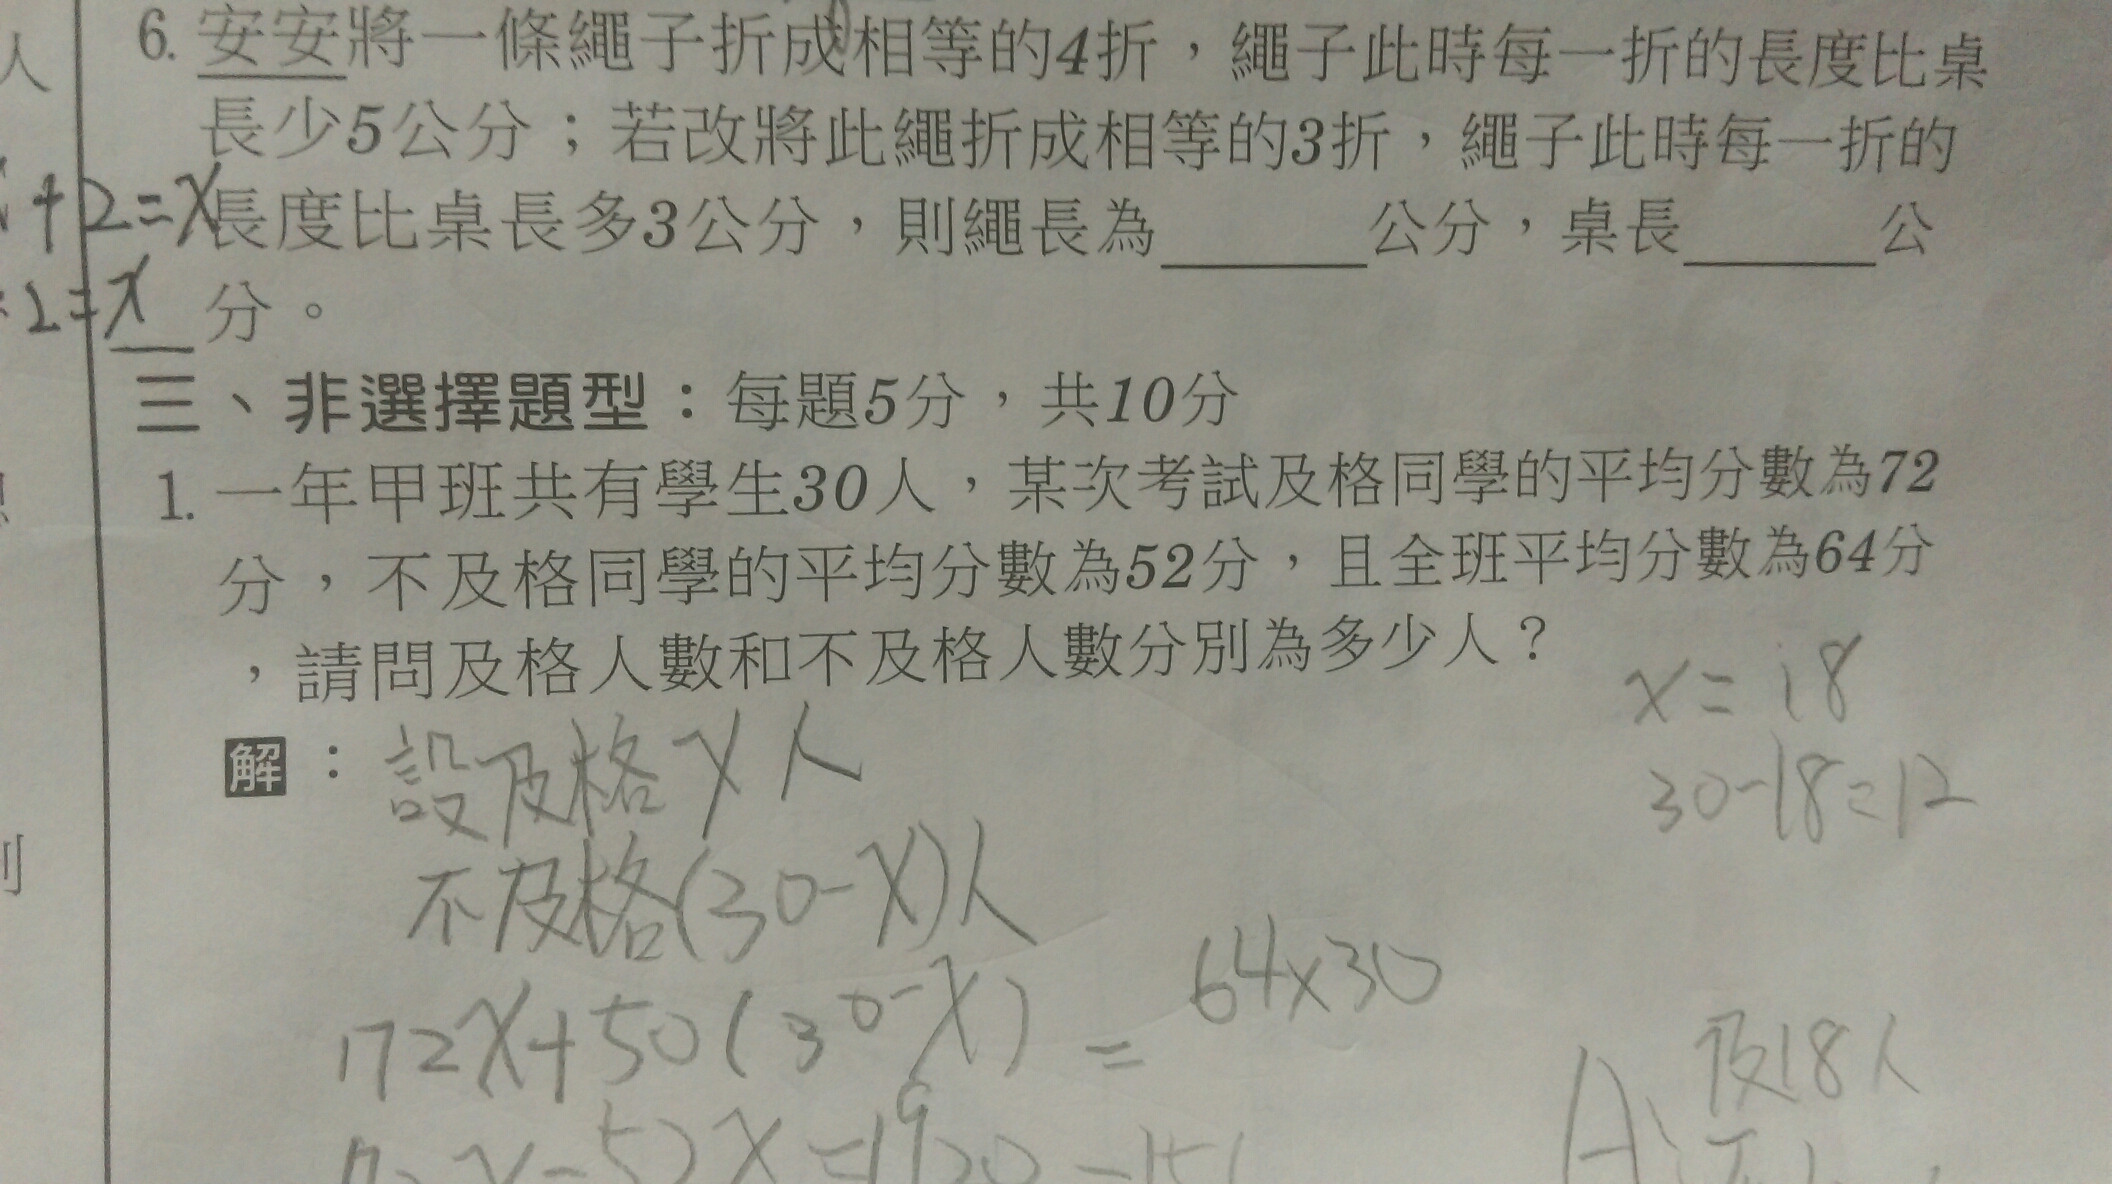 6. 安安將一條繩子折成相等的4折，繩子此時每一折的長度比桌
人
長少5公分；若改將此繩折成相等的3折，繩子此時每一折的
+2=x
長度比桌長多3公分，則繩長為______公分，桌長______公
2=x
分。
三、非選擇題型：每題5分，共10分
1. 一年甲班共有學生30人，某次考試及格同學的平均分數為72
分，不及格同學的平均分數為52分，且全班平均分數為64分
，請問及格人數和不及格人數分別為多少人？
x=18
解：設及格x人
30-18=12
不及格(30-x)人
72x+50(30-x)=64x30
及18人
A:
x-52x=1920-